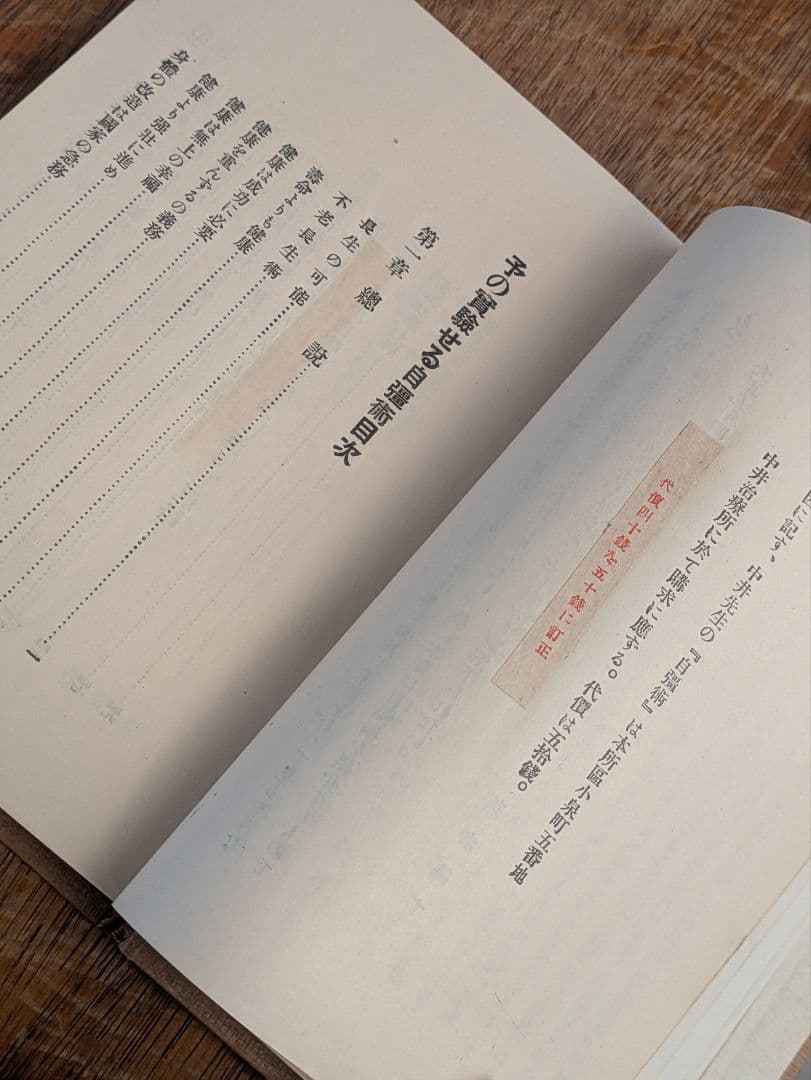 に記す、中井先生の『自彊術』は本所區小泉町五番地
中井治療所に於て購求に應ずる。代價は五拾錢。
代價四十錢を五十錢に訂正
予の實驗せる自彊術目次
第一章 總說
長生の可能……………………一
不老長生術
壽命よりも健康
健康は成功に必要
健康を重んずるの義務
健康は無上の幸福
健康より强壯に進め
身體の改造は國家の急務